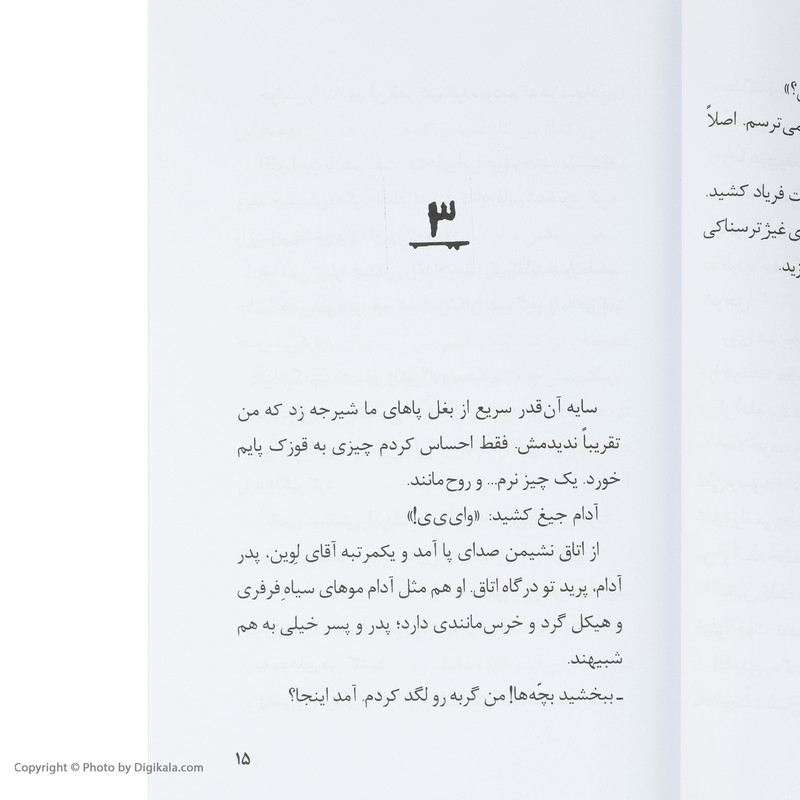 می‌ترسم. اصلاً
فریاد کشید.
غیژ ترسناکی
۳
سایه آن‌قدر سریع از بغل پاهای ما شیرجه زد که من
تقریباً ندیدمش. فقط احساس کردم چیزی به قوزک پایم
خورد. یک چیز نرم... و روح‌مانند.
آدام جیغ کشید: «وای‌ی‌ی!»
از اتاق نشیمن صدای پا آمد و یکمرتبه آقای لِوین، پدر
آدام، پرید تو درگاه اتاق. او هم مثل آدام موهای سیاهِ فرفری
و هیکل گرد و خرس‌مانندی دارد؛ پدر و پسر خیلی به هم
شبیهند.
ـ ببخشید بچّه‌ها! من گربه رو لگد کردم. آمد اینجا؟
۱۵
Copyright © Photo by Digikala.com